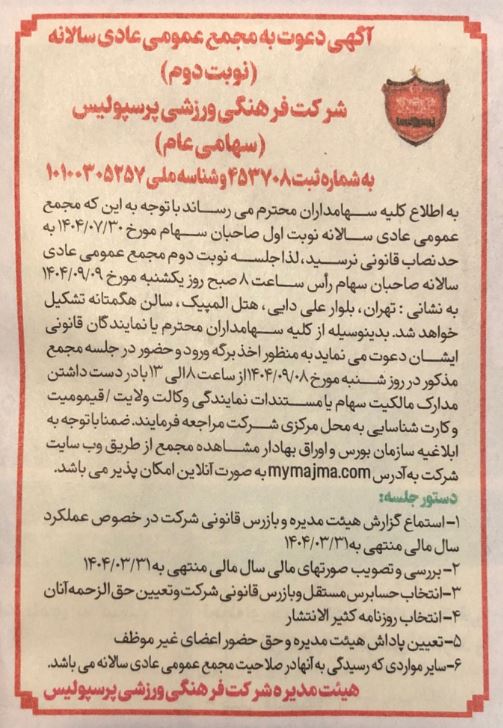 آگهی دعوت به مجمع عمومی عادی سالانه
(نوبت دوم)
شرکت فرهنگی ورزشی پرسپولیس
(سهامی عام)
به شماره ثبت ۴۵۳۷۰۸ و شناسه ملی ۱۰۱۰۰۳۰۵۲۵۷
به اطلاع کلیه سهامداران محترم می رساند با توجه به این که مجمع
عمومی عادی سالانه نوبت اول صاحبان سهام مورخ ۱۴۰۴/۰۷/۳۰ به
حد نصاب قانونی نرسید، لذا جلسه نوبت دوم مجمع عمومی عادی
سالانه صاحبان سهام رأس ساعت ۸ صبح روز یکشنبه مورخ ۱۴۰۴/۰۹/۰۹
به نشانی : تهران، بلوار علی دایی، هتل المپیک، سالن هگمتانه تشکیل
خواهد شد. بدینوسیله از کلیه سهامداران محترم یا نمایندگان قانونی
ایشان دعوت می نماید به منظور اخذ برگه ورود و حضور در جلسه مجمع
مذکور در روز شنبه مورخ ۱۴۰۴/۰۹/۰۸ از ساعت ۸ الی ۱۳ با در دست داشتن
مدارک مالکیت سهام یا مستندات نمایندگی وکالت ولایت / قیمومیت
و کارت شناسایی به محل مرکزی شرکت مراجعه فرمایند. ضمنا با توجه به
ابلاغیه سازمان بورس و اوراق بهادار مشاهده مجمع از طریق وب سایت
شرکت به آدرس mymajma.com به صورت آنلاین امکان پذیر می باشد.
دستور جلسه:
۱- استماع گزارش هیئت مدیره و بازرس قانونی شرکت در خصوص عملکرد
سال مالی منتهی به ۱۴۰۴/۰۳/۳۱
۲- بررسی و تصویب صورتهای مالی سال مالی منتهی به ۱۴۰۴/۰۳/۳۱
۳- انتخاب حسابرس مستقل و بازرس قانونی شرکت و تعیین حق الزحمه آنان
۴- انتخاب روزنامه کثیر الانتشار
۵- تعیین پاداش هیئت مدیره و حق حضور اعضای غیر موظف
۶- سایر مواردی که رسیدگی به آنها در صلاحیت مجمع عمومی عادی سالانه می باشد.
هیئت مدیره شرکت فرهنگی ورزشی پرسپولیس